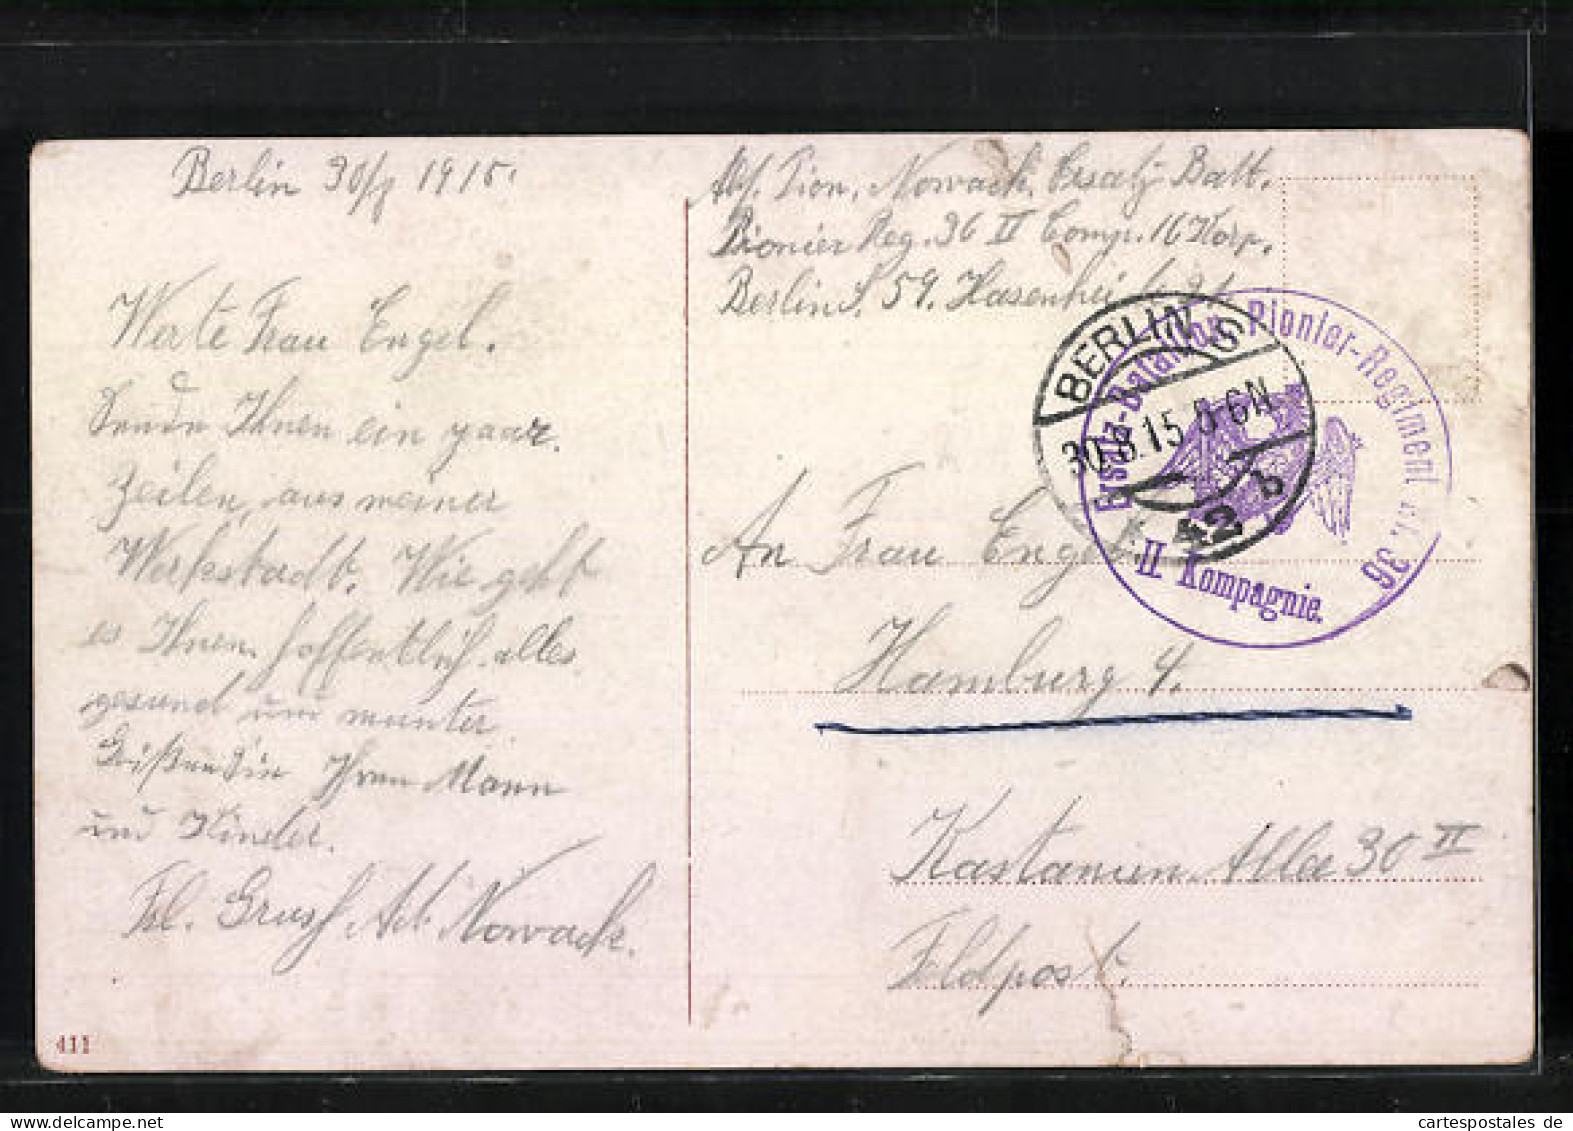 Berlin 30/8 1915.
Werte Frau Engel.
Sende Ihnen ein paar
Zeilen, aus meiner
Werkstadt. Wie geht
es Ihnen hoffentlich alles
gesund und munter.
Ihren Mann
und Kinder.
Fl. Grusß Nowack.
411
Abs. Pion. Nowack, Ersatz Batt.
Pionier Reg. 36 II Comp. 16 Korp.
Berlin S. 59. Hasenhei
BERLIN S
30.8.15 5-6N
42 b
Ersatz-Bataillon Pionier-Regiment Nr. 36
II. Kompagnie.
An Frau Engel
Hamburg 4.
Kastanien Allee 30 II
Feldpost.
cartespostales de